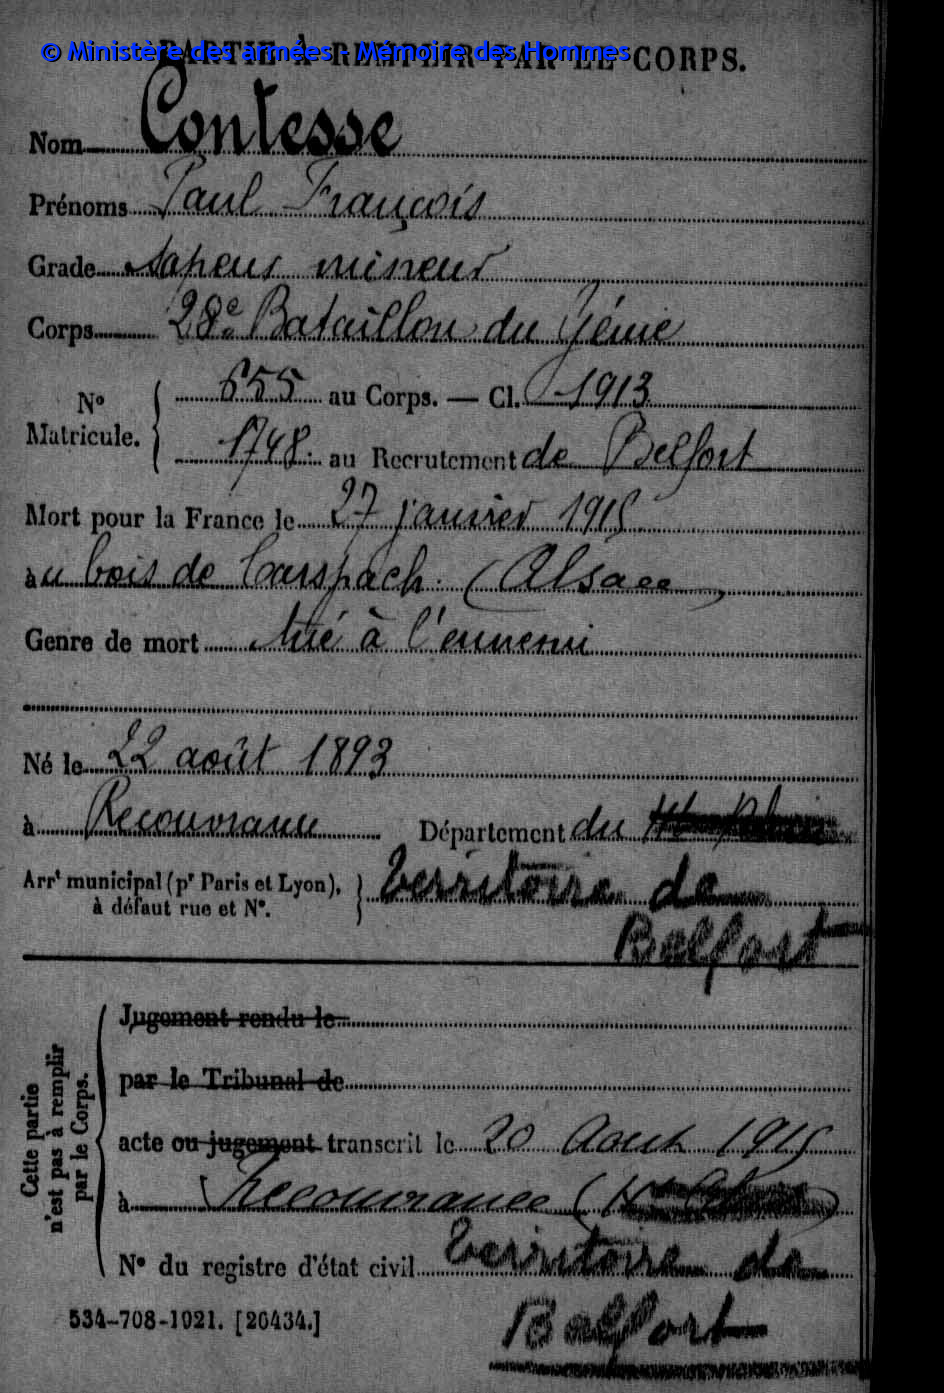 © Ministère des armées - Mémoire des Hommes
PARTIE À REMPLIR PAR LE CORPS.
Nom Contesse
Prénoms Paul François
Grade sapeur mineur
Corps 28e Bataillon du Génie
No Matricule. { 655 au Corps. — Cl. 1913
1748. au Recrutement de Belfort
Mort pour la France le 27 janvier 1915
au bois de Carspach. (Alsace)
Genre de mort tué à l'ennemi
Né le 22 août 1893
à Recouvrance Département du Ht Rhin
Arrt municipal (pr Paris et Lyon), } territoire de
à défaut rue et No.
Belfort
Cette partie n'est pas à remplir par le Corps.
Jugement rendu le
par le Tribunal de
acte ou jugement transcrit le 20 Aout 1915
à Recouvrance (Ht Rhin)
No du registre d'état civil territoire de
Belfort
534-708-1921. [26434.]